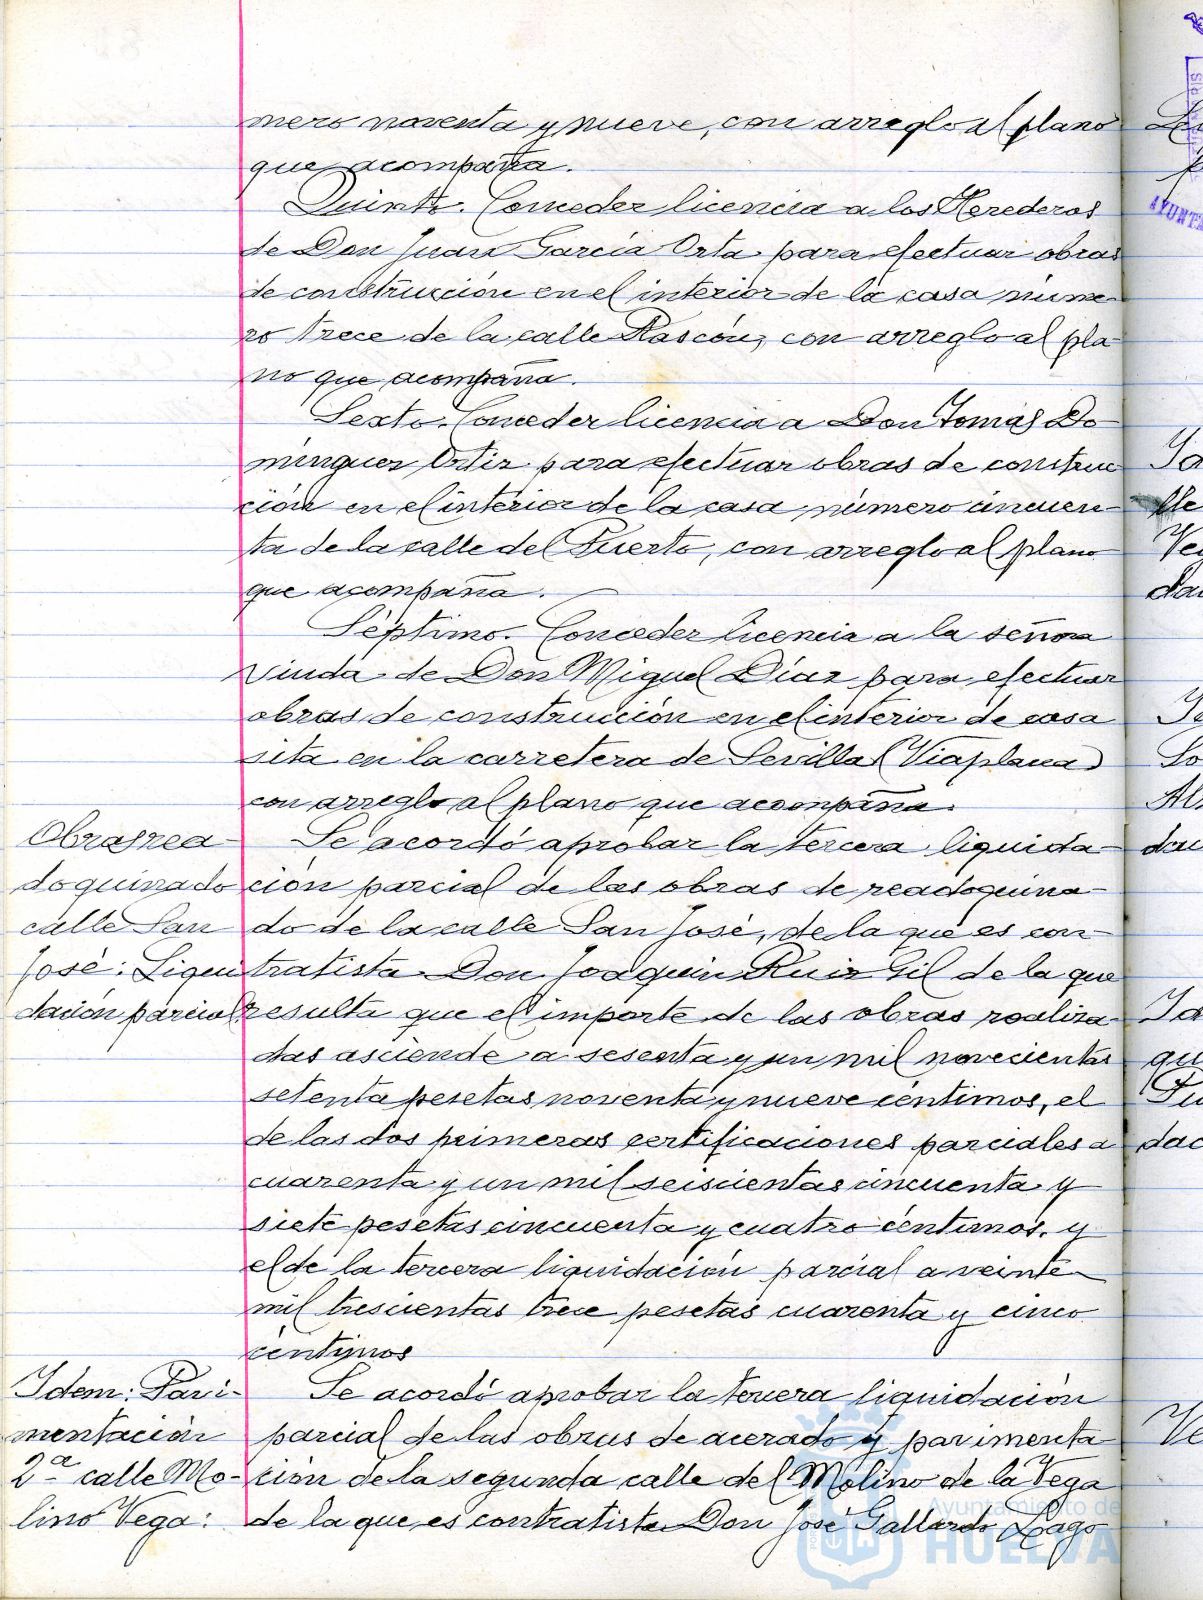 mero noventa y nueve, con arreglo al plano
que acompaña.
Quinto. Conceder licencia a los Herederos
de Don Juan García Orta para efectuar obras
de construcción en el interior de la casa núme-
ro trece de la calle Rascón, con arreglo al pla-
no que acompaña.
Sexto. Conceder licencia a Don Tomás Do-
minguez Ortiz para efectuar obras de construc-
ción en el interior de la casa número cincuen-
ta de la calle del Puerto, con arreglo al plano
que acompaña.
Séptimo. Conceder licencia a la señora
Viuda de Don Miguel Díaz para efectuar
obras de construcción en el interior de casa
sita en la carretera de Sevilla (Viaplana)
con arreglo al plano que acompaña.
Obras rea-
doquinado
calle San
José: Liqui
dación parcial
Se acordó aprobar la tercera liquida-
ción parcial de las obras de readoquina-
do de la calle San José, de la que es con-
tratista Don Joaquin Ruiz Gil de la que
resulta que el importe de las obras realiza-
das asciende a sesenta y un mil novecientas
setenta pesetas noventa y nueve céntimos, el
de las dos primeras certificaciones parciales a
cuarenta y un mil seiscientas cincuenta y
siete pesetas cincuenta y cuatro céntimos, y
el de la tercera liquidación parcial a veinte
mil trescientas trece pesetas cuarenta y cinco
céntimos
Idem: Pavi-
mentación
2ª calle Mo-
lino Vega:
Se acordó aprobar la tercera liquidación
parcial de las obras de acerado y pavimenta-
ción de la segunda calle del Molino de la Vega
de la que es contratista Don José Gallardo Lago
Ayuntamiento de
HUELVA